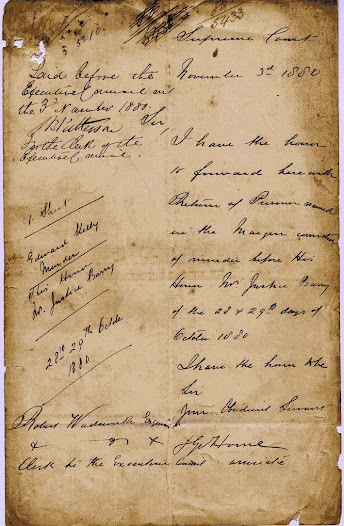 5433
Supreme Court
November 3rd 1880
Laid before the
Executive Council on
the 3rd November 1880.
For the Clerk of the
Executive Council.
Sir,
I have the honor
to forward herewith
Return of Prisoner named
in the Margin convicted
of murder before His
Honor Mr Justice Barry
of the 28 & 29th days of
October 1880
1. Sheet
Edward Kelly
Murder
His Honor
Mr. Justice Barry
28th 29th Octbr
1880
I have the honor to be
Sir
Your Obedient Servant
Robert Wadsworth Esquire
Clerk to the Executive Council
associate